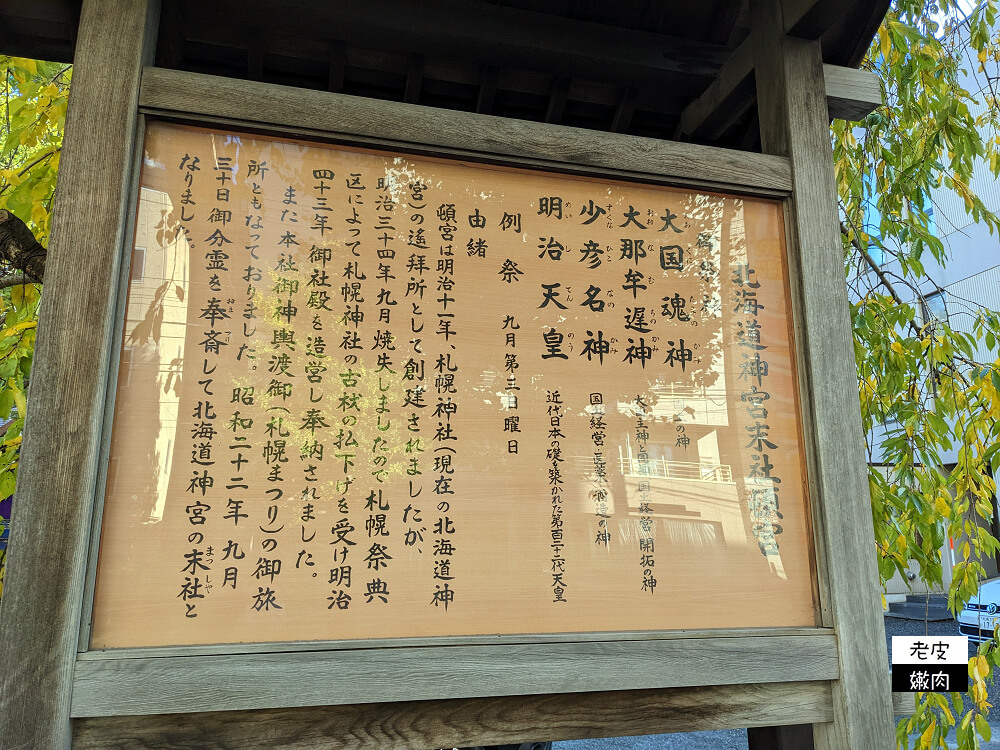 北海道神宮末社頓宮
御祭神
大国魂神
の神
大那牟遅神 大国主神と同神 国土経営、開拓の神
少彦名神 国土経営、医薬、酒造の神
明治天皇 近代日本の礎を築かれた第百二十二代天皇
例祭 九月第三日曜日
由緒
頓宮は明治十一年、札幌神社(現在の北海道神
宮)の遙拝所として創建されましたが、
明治三十四年九月焼失しましたので札幌祭典
区によって札幌神社の古材の払下げを受け明治
四十三年御社殿を造営し奉納されました。
また本社御神輿渡御(札幌まつり)の御旅
所ともなっておりました。昭和二十二年九月
三十日御分霊を奉斎して北海道神宮の末社と
なりました。
老皮
嫩肉